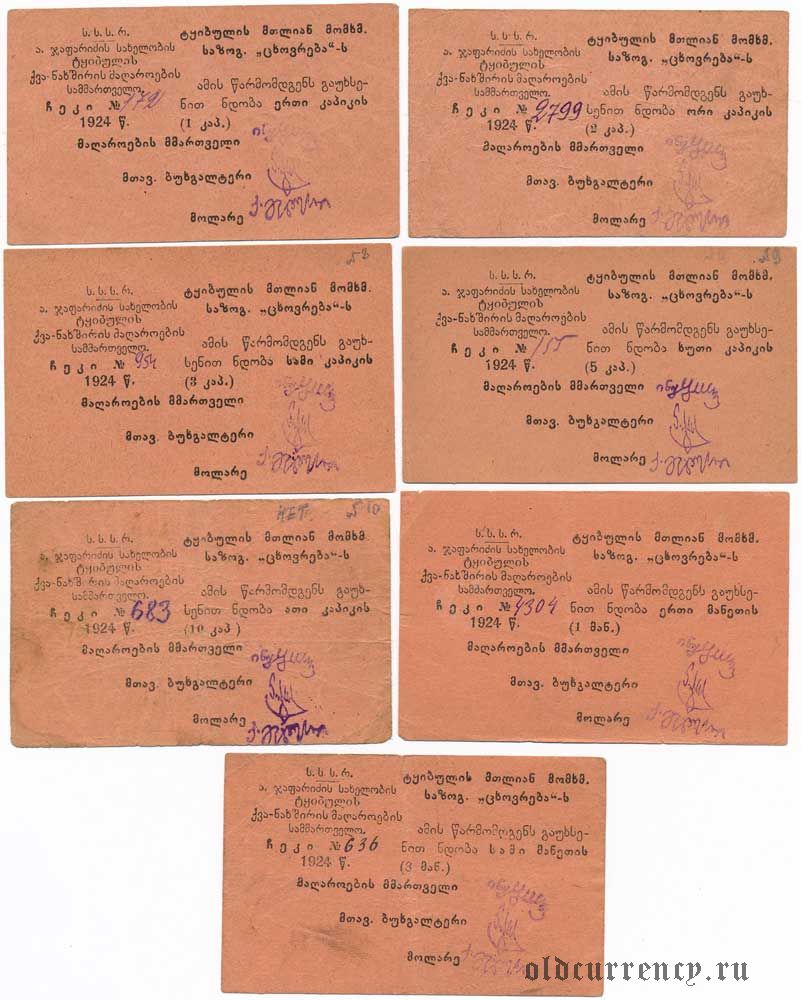 ს. ს. ს. რ.
ა. ჯაფარიძის სახელობის
ტყიბულის
ქვა-ნახშირის მაღაროების
სამმართველო.
ჩეკი № 772
1924 წ.
ტყიბულის მთლიან მომხმ.
საზოგ. „ცხოვრება“-ს
ამის წარმომდგენს გაუხსე-
ნით ნდობა ერთი კაპიკის
(1 კაპ.)
მაღაროების მმართველი
მთავ. ბუხგალტერი
მოლარე
ს. ს. ს. რ.
ა. ჯაფარიძის სახელობის
ტყიბულის
ქვა-ნახშირის მაღაროების
სამმართველო.
ჩეკი № 2799
1924 წ.
ტყიბულის მთლიან მომხმ.
საზოგ. „ცხოვრება“-ს
ამის წარმომდგენს გაუხ-
სენით ნდობა ორი კაპიკის
(2 კაპ.)
მაღაროების მმართველი
მთავ. ბუხგალტერი
მოლარე
ს. ს. ს. რ.
ა. ჯაფარიძის სახელობის
ტყიბულის
ქვა-ნახშირის მაღაროების
სამმართველო.
ჩეკი № 954
1924 წ.
ტყიბულის მთლიან მომხმ.
საზოგ. „ცხოვრება“-ს
ამის წარმომდგენს გაუხ-
სენით ნდობა სამი კაპიკის
(3 კაპ.)
მაღაროების მმართველი
მთავ. ბუხგალტერი
მოლარე
ს. ს. ს. რ.
ა. ჯაფარიძის სახელობის
ტყიბულის
ქვა-ნახშირის მაღაროების
სამმართველო.
ჩეკი № 155
1924 წ.
ტყიბულის მთლიან მომხმ.
საზოგ. „ცხოვრება“-ს
ამის წარმომდგენს გაუხსე-
ნით ნდობა ხუთი კაპიკის
(5 კაპ.)
მაღაროების მმართველი
მთავ. ბუხგალტერი
მოლარე
НЕТ.
ს. ს. ს. რ.
ა. ჯაფარიძის სახელობის
ტყიბულის
ქვა-ნახშირის მაღაროების
სამმართველო.
ჩეკი № 683
1924 წ.
ტყიბულის მთლიან მომხმ.
საზოგ. „ცხოვრება“-ს
ამის წარმომდგენს გაუხ-
სენით ნდობა ათი კაპიკის
(10 კაპ )
მაღაროების მმართველი
მთავ. ბუხგალტერი
მოლარე
ს. ს. ს. რ.
ა. ჯაფარიძის სახელობის
ტყიბულის
ქვა-ნახშირის მაღაროების
სამმართველო.
ჩეკი № 4304
1924 წ.
ტყიბულის მთლიან მომხმ.
საზოგ. „ცხოვრება“-ს
ამის წარმომდგენს გაუხსე-
ნით ნდობა ერთი მანეთის
(1 მან.)
მაღაროების მმართველი
მთავ. ბუხგალტერი
მოლარე
ს. ს. ს. რ.
ა. ჯაფარიძის სახელობის
ტყიბულის
ქვა-ნახშირის მაღაროების
სამმართველო.
ჩეკი № 636
1924 წ.
ტყიბულის მთლიან მომხმ.
საზოგ. „ცხოვრება“-ს
ამის წარმომდგენს გაუხსე-
ნით ნდობა სამი მანეთის
(3 მან.)
მაღაროების მმართველი
მთავ. ბუხგალტერი
მოლარე
oldcurrency.ru